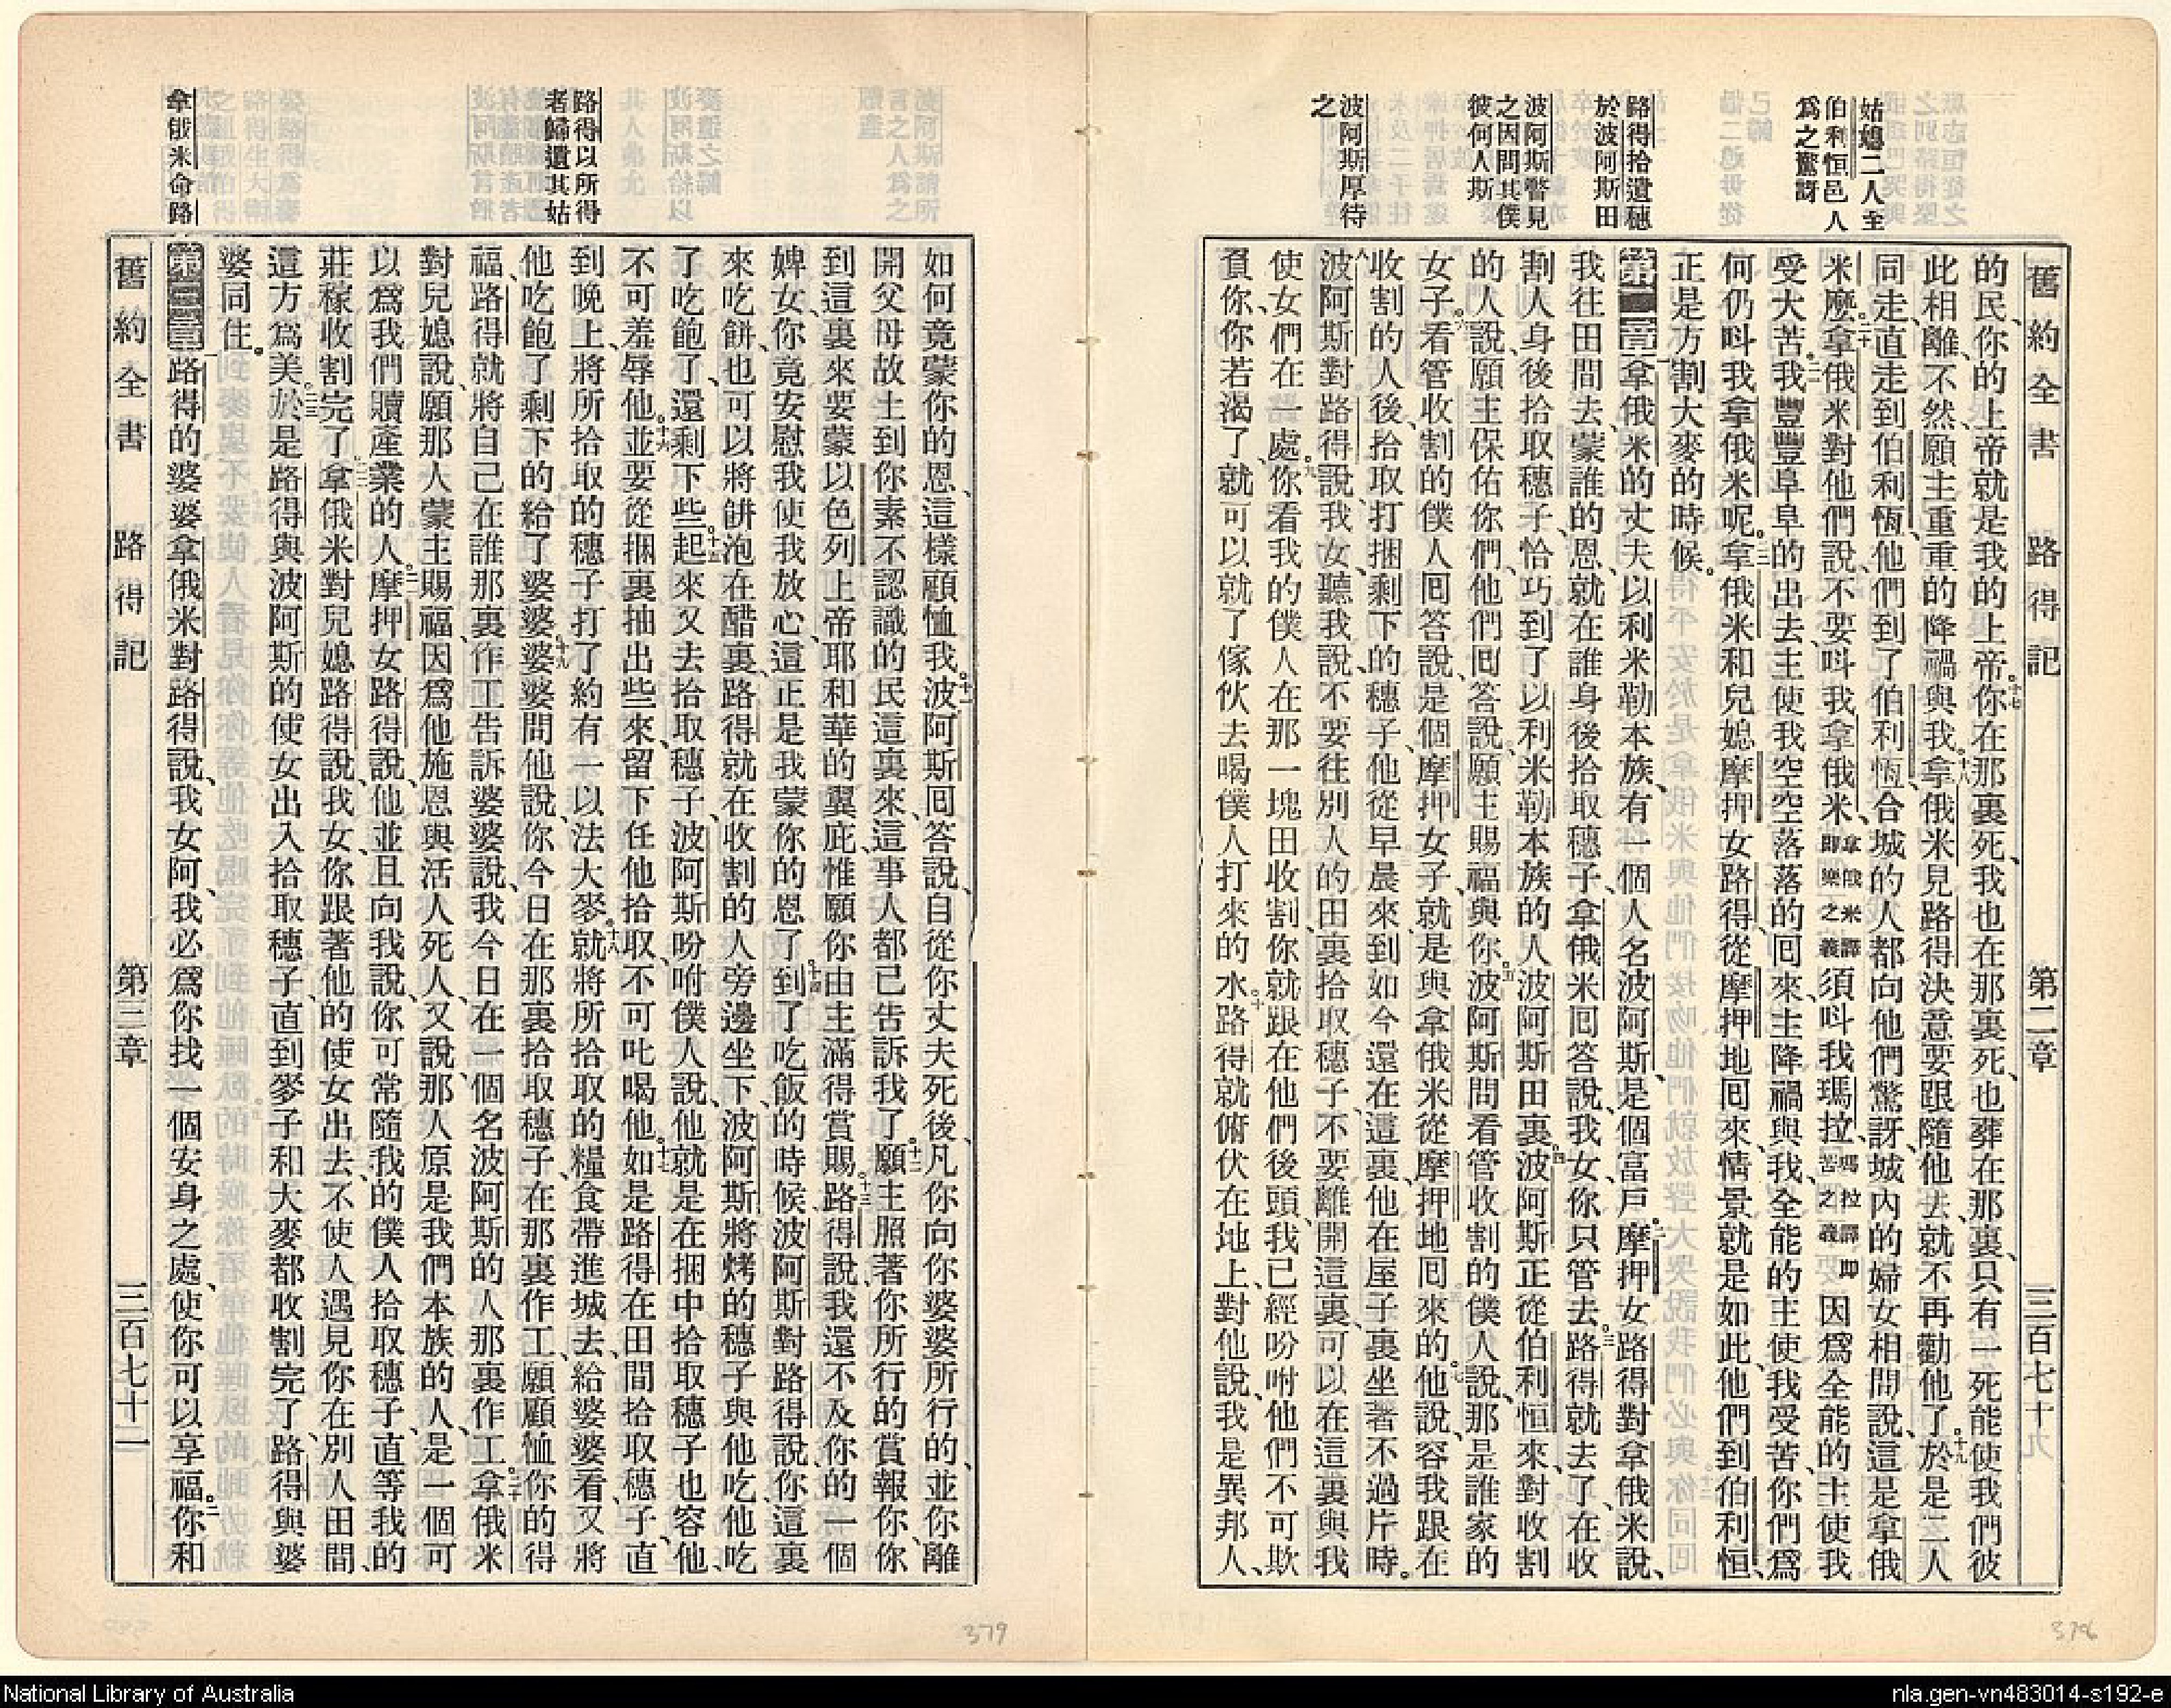 舊約全書 路得記 第二章 三百七十
姑媳二人至
伯利恒邑人
爲之驚訝
路得拾遺穗
於波阿斯田
波阿斯瞥見
之因問其僕
彼何人斯
波阿斯厚待
之
的民、你的上帝就是我的上帝。十七你在那裏死、我也在那裏死、也葬在那裏、只有一死能使我們彼
此相離、不然、願主重重的降禍與我。十八拿俄米見路得決意要跟隨他去、就不再勸他了。十九於是二人
同走、直走到伯利恆、他們到了伯利恆、合城的人都向他們驚訝、城內的婦女相問說、這是拿俄
米麼。二十拿俄米對他們說、不要呌我拿俄米、拿俄米譯卽樂之義須呌我瑪拉、瑪拉譯卽苦之義因爲全能的主使我
受大苦。二一我豐豐阜阜的出去、主使我空空落落的回來、主降禍與我、全能的主使我受苦、你們爲
何仍呌我拿俄米呢。二二拿俄米和兒媳摩押女路得、從摩押地回來、情景就是如此、他們到伯利恒、
正是方割大麥的時候。
第二章一拿俄米的丈夫以利米勒本族、有一個人名波阿斯、是個富戶。二摩押女路得對拿俄米說、
我往田間去、蒙誰的恩、就在誰身後拾取穗子、拿俄米回答說、我女、你只管去。三路得就去了、在收
割人身後拾取穗子、恰巧到了以利米勒本族的人波阿斯田裏。四波阿斯正從伯利恒來、對收割
的人說、願主保佑你們、他們回答說、願主賜福與你。五波阿斯問看管收割的僕人說、那是誰家的
女子。六看管收割的僕人回答說、是個摩押女子、就是與拿俄米從摩押地回來的。七他說、容我跟在
收割的人後、拾取打捆剩下的穗子、他從早晨來到如今、還在這裏、他在屋子裏坐著不過片時。
八波阿斯對路得說、我女、聽我說、不要往別人的田裏拾取穗子、不要離開這裏、可以在這裏與我
使女們在一處。九你看我的僕人在那一塊田收割、你就跟在他們後頭、我已經吩咐他們不可欺
負你、你若渴了、就可以就了傢伙去喝僕人打來的水。十路得就俯伏在地上、對他說、我是異邦人、
如何竟蒙你的恩、這樣顧恤我。十一波阿斯回答說、自從你丈夫死後、凡你向你婆婆所行的、並你離
開父母故土、到你素不認識的民這裏來、這事人都已告訴我了。十二願主照著你所行的賞報你、你
到這裏來要蒙以色列上帝耶和華的翼庇、惟願你由主滿得賞賜。十三路得說、我還不及你的一個
婢女、你竟安慰我、使我放心、這正是我蒙你的恩了。十四到了吃飯的時候、波阿斯對路得說、你這裏
來吃餅、也可以將餅泡在醋裏、路得就在收割的人旁邊坐下、波阿斯將烤的穗子與他吃、他吃
了吃飽了、還剩下些。十五起來又去拾取穗子、波阿斯吩咐僕人說、他就是在捆中拾取穗子、也容他、
不可羞辱他。十六並要從捆裏抽出些來、留下任他拾取、不可叱喝他。十七如是路得在田間拾取穗子、直
到晚上、將所拾取的穗子打了、約有一以法大麥。十八就將所拾取的糧食帶進城去、給婆婆看、又將
他吃飽了剩下的給了婆婆。十九婆婆問他說、你今日在那裏拾取穗子、在那裏作工、願顧恤你的得
福、路得就將自己在誰那裏作工告訴婆婆說、我今日在一個名波阿斯的人那裏作工。二十拿俄米
對兒媳說、願那人蒙主賜福、因爲他施恩與活人死人、又說、那人原是我們本族的人、是一個可
以爲我們贖產業的人。二一摩押女路得說、他並且向我說、你可常隨我的僕人拾取穗子、直等我的
莊稼收割完了。二二拿俄米對兒媳路得說、我女、你跟著他的使女出去、不使人遇見你在別人田間、
這方爲美。二三於是路得與波阿斯的使女出入拾取穗子、直到麥子和大麥都收割完了、路得與婆
婆同住。
第三章一路得的婆婆拿俄米對路得說、我女阿、我必爲你找一個安身之處、使你可以享福。二你和
路得以所得
者歸遺其姑
拿俄米命路
舊約全書 路得記 第三章 三百七十二
378
379
National Library of Australia
nla.gen-vn483014-s192-e